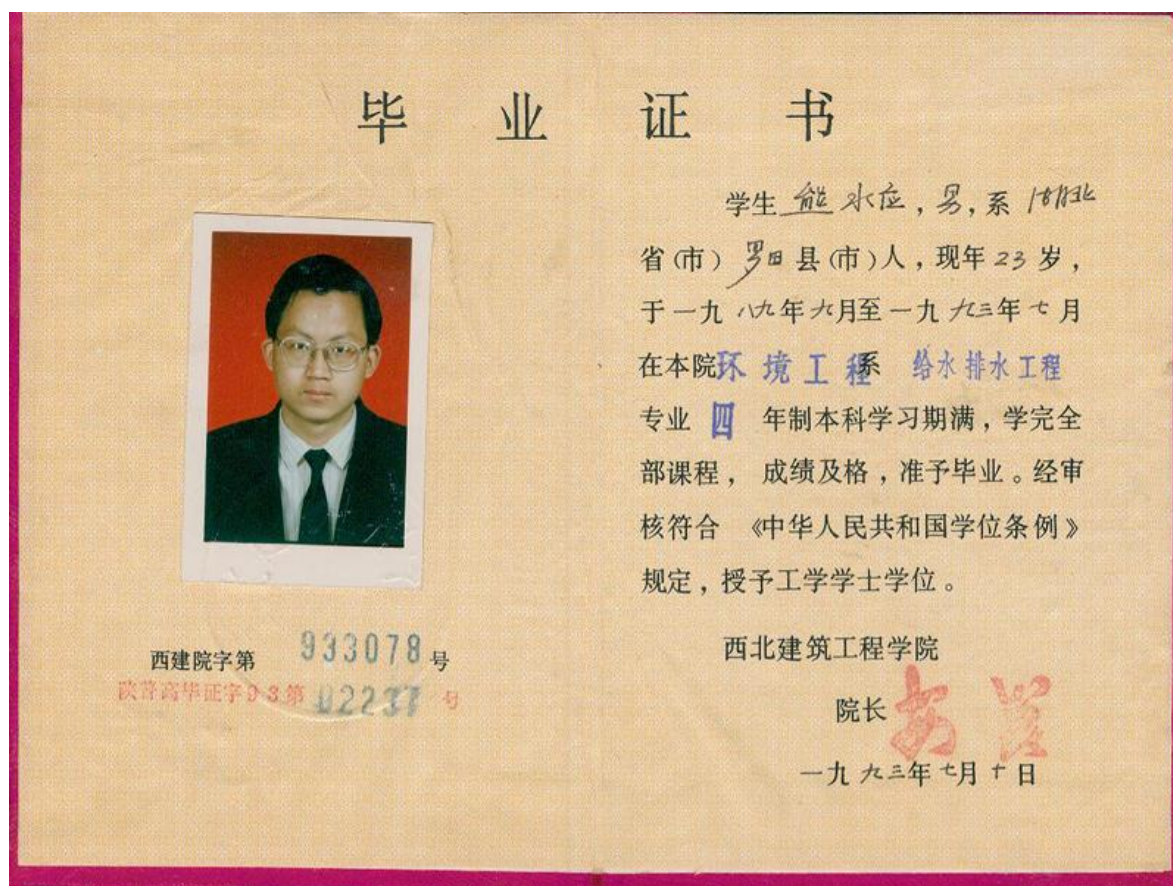 毕业证书
学生 熊水应，男，系 湖北
省（市）罗田县（市）人，现年 23 岁，
于一九八九年九月至一九九三年七月
在本院环境工程系 给水排水工程
专业 四 年制本科学习期满，学完全
部课程，成绩及格，准予毕业。经审
核符合《中华人民共和国学位条例》
规定，授予工学学士学位。
西北建筑工程学院
院长
一九九三年七月十日
西建院字第 933078 号
陕普高毕证字93第 号